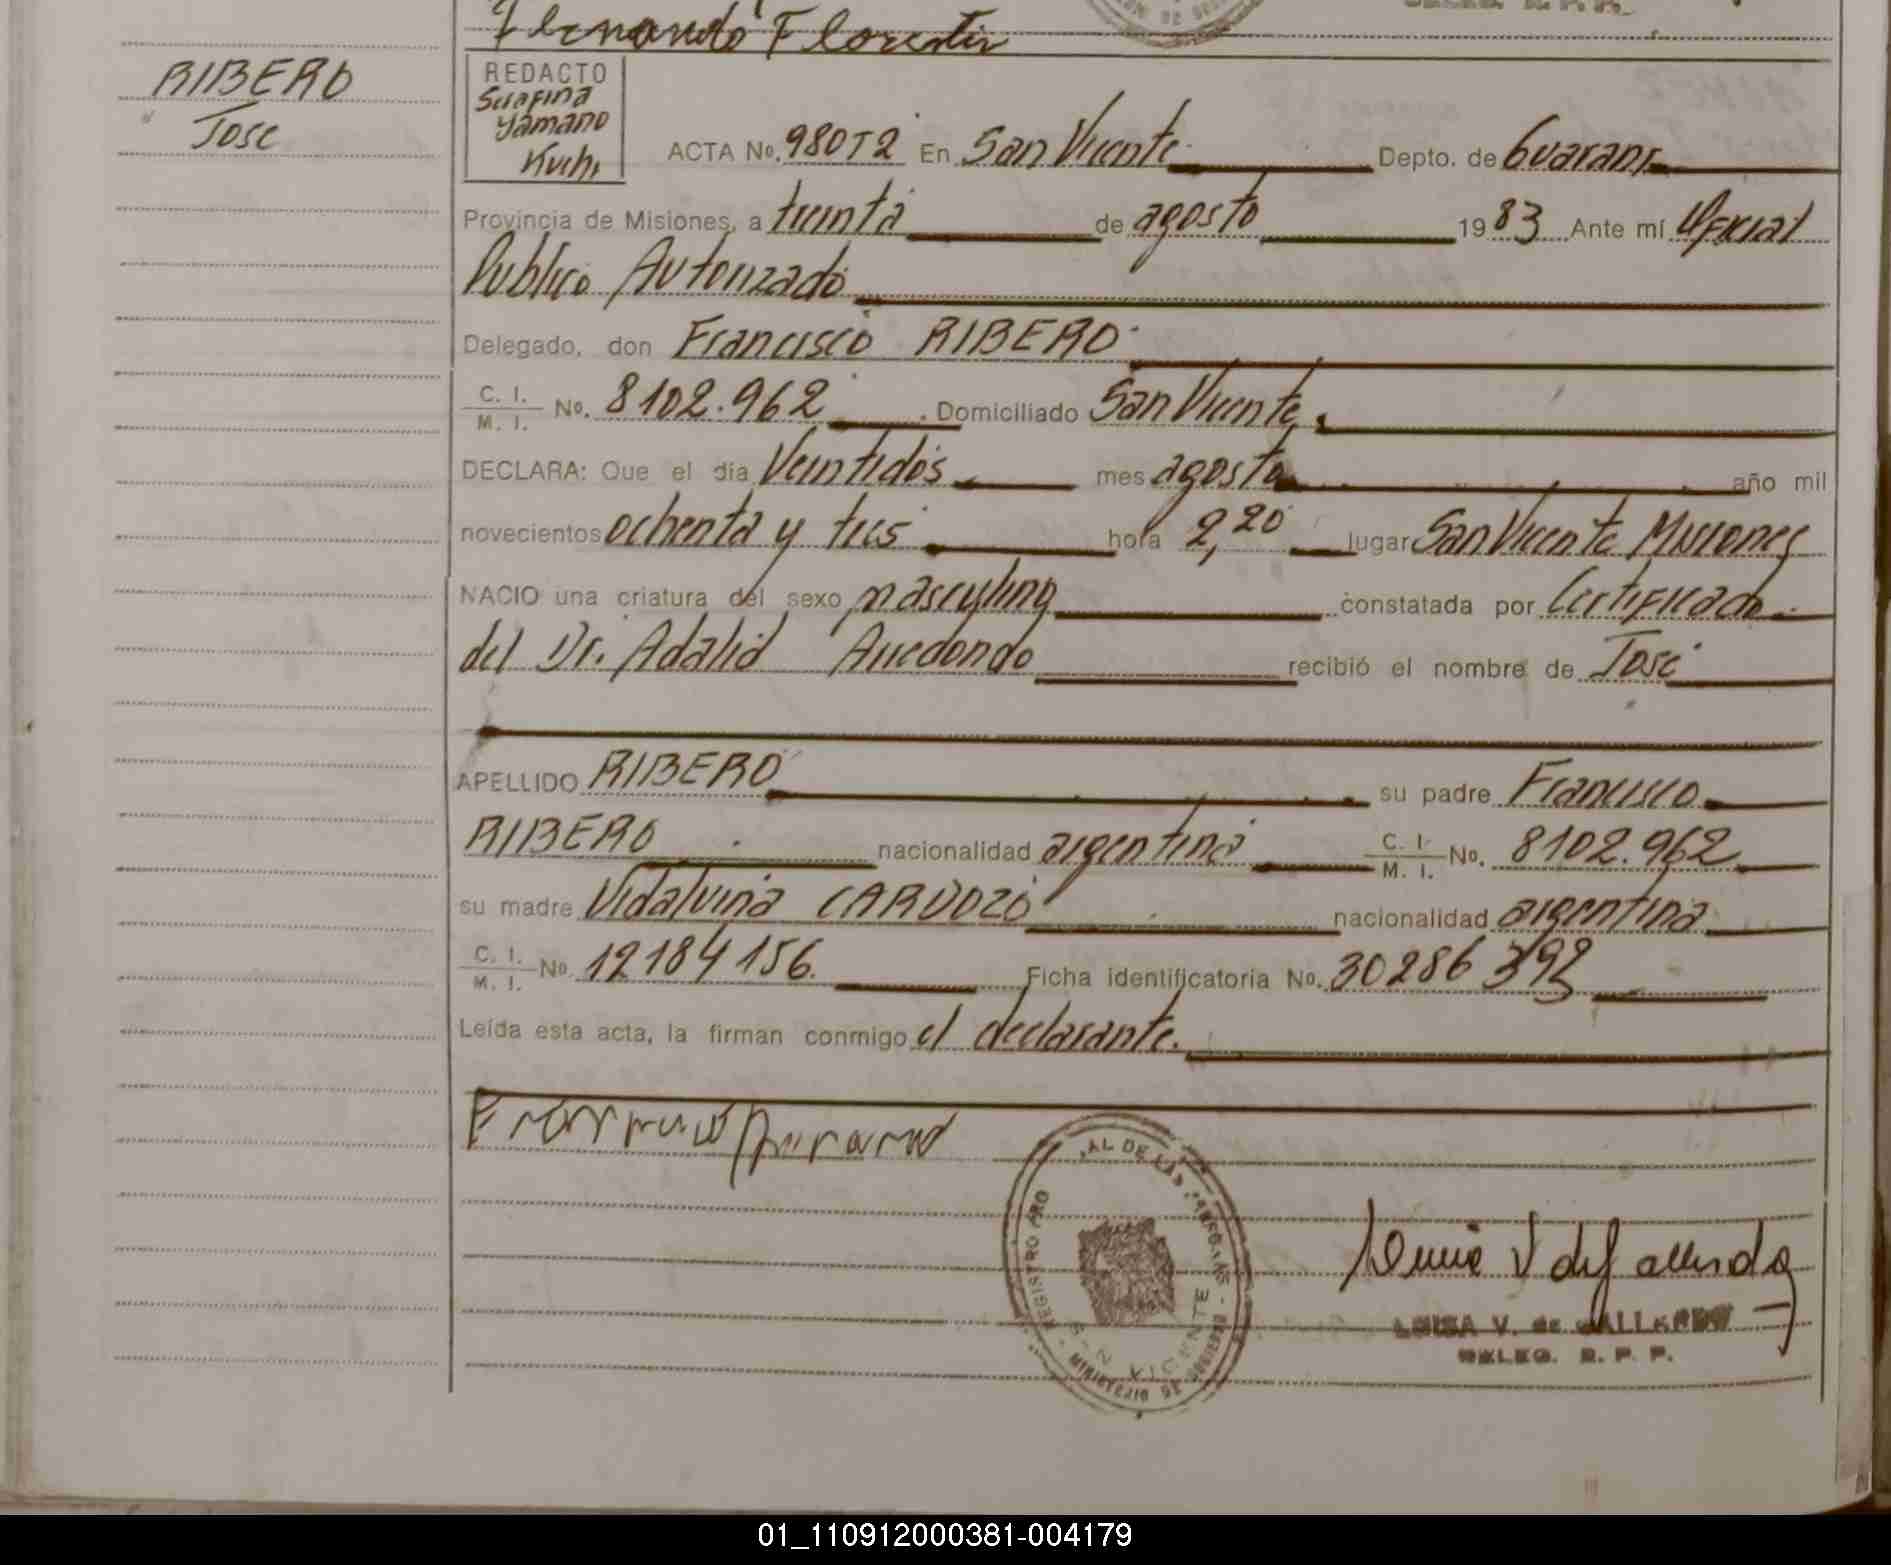 Florentin
RIBERO
Jose
REDACTO
Serafina
Yamano
Kuchi
ACTA No. 980T2 En San Vicente Depto. de Guarani
Provincia de Misiones, a treinta de agosto 1983 Ante mí Oficial
Publico Autorizado
Delegado, don Francisco RIBERO
C. I. / M. I. No. 8102.962 Domiciliado San Vicente
DECLARA: Que el día Veintidos mes agosto año mil
novecientos ochenta y tres hora 2,20 lugar San Vicente Misiones
NACIO una criatura del sexo masculino constatada por Certificado
del Dr. Adalid Arredondo recibió el nombre de José
APELLIDO RIBERO su padre Francisco
RIBERO nacionalidad argentina C. I. / M. I. No. 8102.962
su madre Vidalvina CARDOZO nacionalidad argentina
C. I. / M. I. No. 12184156. Ficha identificatoria No. 30286392
Leída esta acta, la firman conmigo el declarante.
REGISTRO PRO AL DE LAS PERSONAS
SAN VICENTE
MINISTERIO DE GOBIERNO
LUISA V. de GALLARDO
DELEG. R. P. P.
01_110912000381-004179